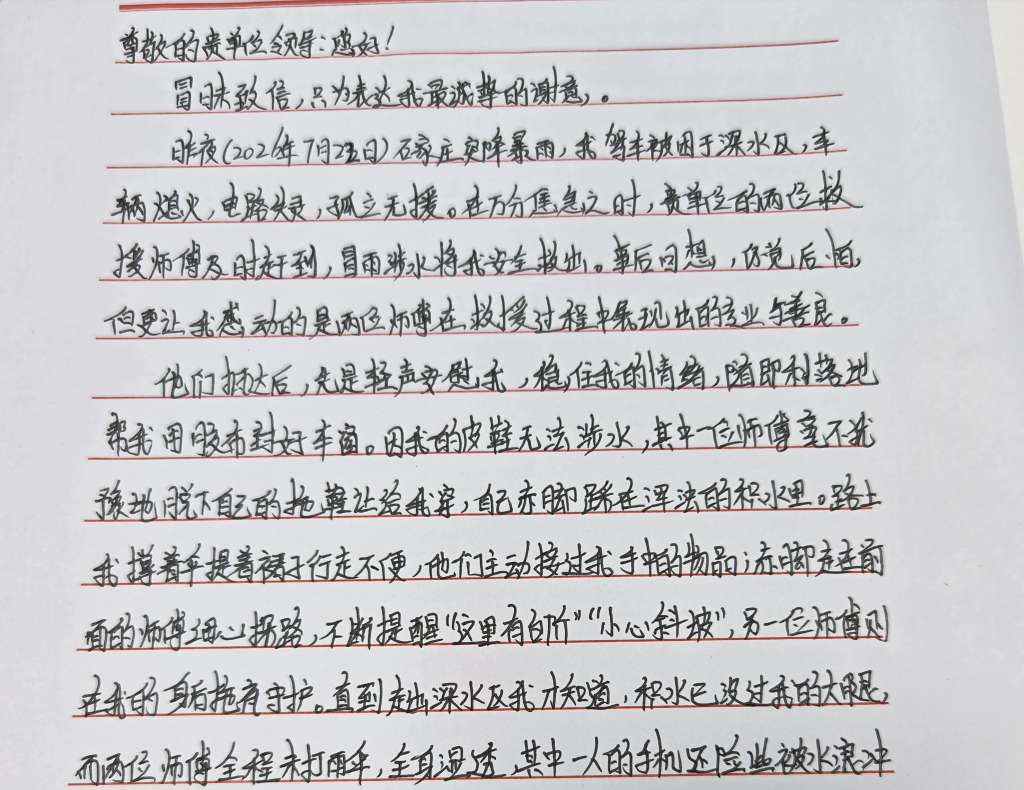 尊敬的贵单位领导:您好!
冒昧致信,只为表达我最诚挚的谢意。
昨夜(2026年7月22日)石家庄突降暴雨,我驾车被困于深水区,车
辆熄火,电路失灵,孤立无援。在万分焦急之时,贵单位的两位救
援师傅及时赶到,冒雨涉水将我安全救出。事后回想,仍觉后怕,
但更让我感动的是两位师傅在救援过程中展现出的专业与善良。
他们抵达后,先是轻声安慰我,稳住我的情绪,随即利落地
帮我用胶布封好车窗。因我的皮鞋无法涉水,其中一位师傅毫不犹
豫地脱下自己的拖鞋让给我穿,自己赤脚踩在浑浊的积水里。路上
我撑着伞提着裙子行走不便,他们主动接过我手中的物品;赤脚走在前
面的师傅细心探路,不断提醒“这里有台阶”“小心斜坡”,另一位师傅则
在我的身后护着守护。直到走出深水区我才知道,积水已没过我的大腿,
而两位师傅全程未打雨伞,全身湿透,其中一人的手机还险些被水浪冲